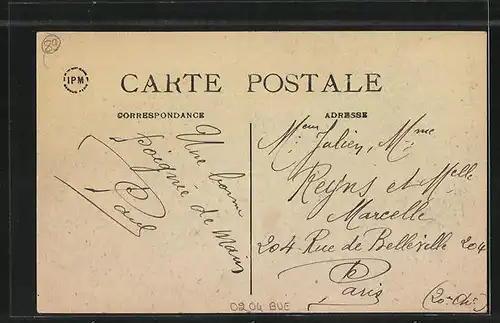 89
IPM
CARTE POSTALE
CORRESPONDANCE
ADRESSE
Une bonne
poignée de mains
Paul
Meur Julien, Mme
Reyns et Melle
Marcelle
204 Rue de Belleville 204
Paris
0204 BUE